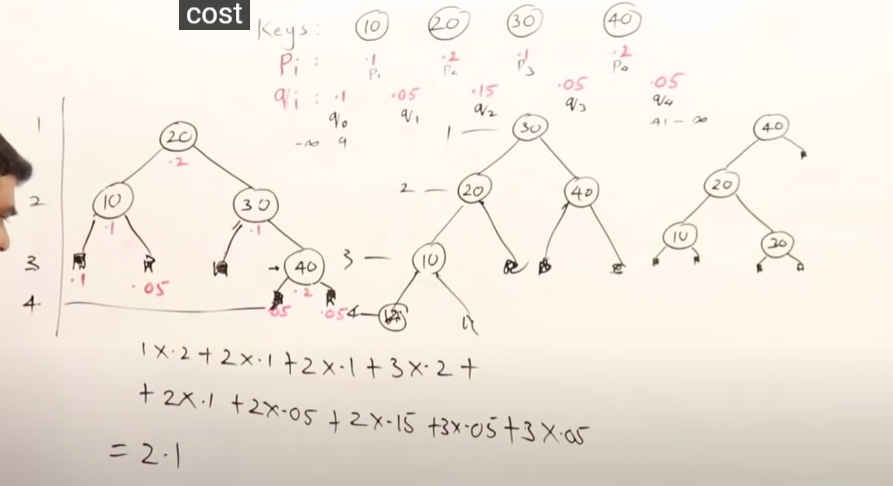 cost
Keys: 10 20 30 40
Pi: .1 .2 .1 .2
P1 P2 P3 P4
qi: .1 .05 .15 .05 .05
q0 q1 q2 q3 q4
-∞ 9 41-∞
1
2
3
4
20
.2
10 30
.1 .1
40
.1 .05 .2
.05 .05
1
2
3
4
30
20 40
10
40
20
10 30
1x.2+2x.1+2x.1+3x.2+
+2x.1+2x.05+2x.15+3x.05+3x.05
=2.1